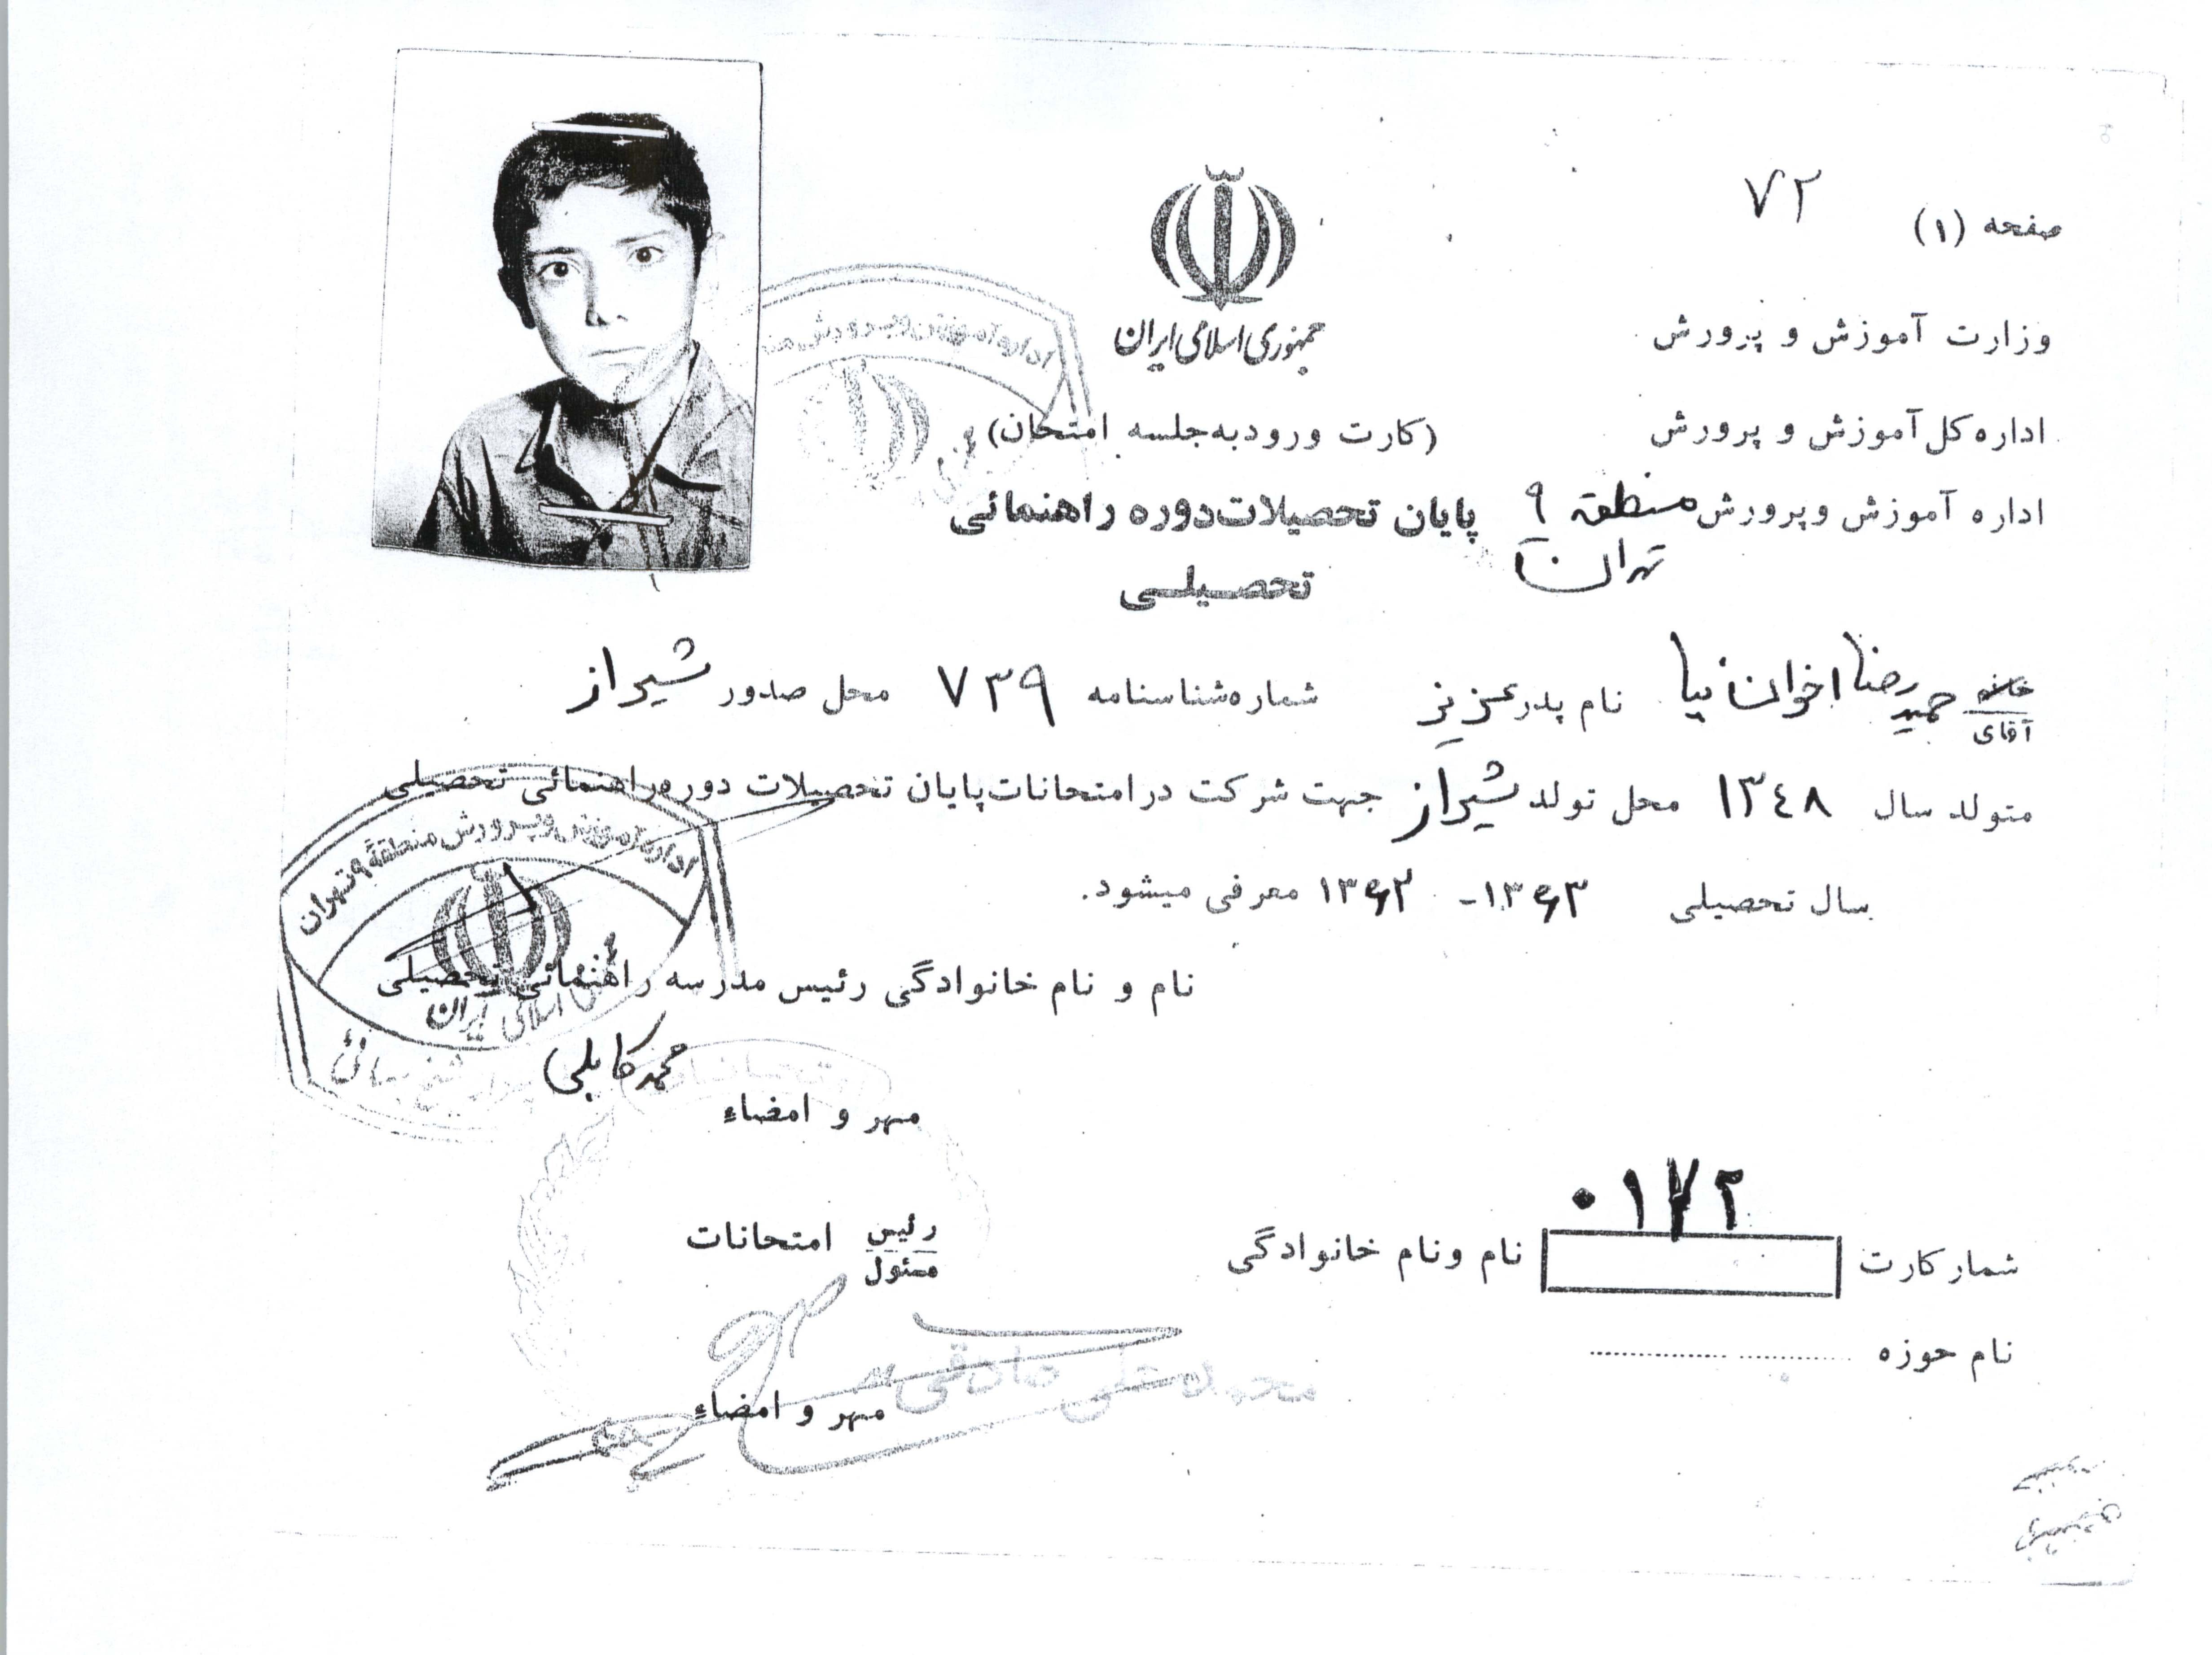 صفحه (۱) ۷۲
جمهوری اسلامی ایران
وزارت آموزش و پرورش
اداره کل آموزش و پرورش
(کارت ورود به جلسه امتحان)
اداره آموزش و پرورش منطقه ۹
تهران
پایان تحصیلات دوره راهنمائی
تحصیلی
خانم
آقای
حمیدرضا اخوان نیا نام پدر عزیز شماره شناسنامه ۷۳۹ محل صدور شیراز
متولد سال ۱۳۴۸ محل تولد شیراز جهت شرکت در امتحانات پایان تحصیلات دوره راهنمائی تحصیلی
سال تحصیلی ۱۳۶۳ - ۱۳۶۲ معرفی میشود.
اداره آموزش و پرورش منطقه ۹ تهران
نام و نام خانوادگی رئیس مدرسه راهنمائی تحصیلی
اسلامی ایران
محمد کابلی
مهر و امضاء
۰۱۷۲
شمار کارت نام و نام خانوادگی
رئیس
مسئول
امتحانات
نام حوزه
محمد علی صادقی
مهر و امضاء